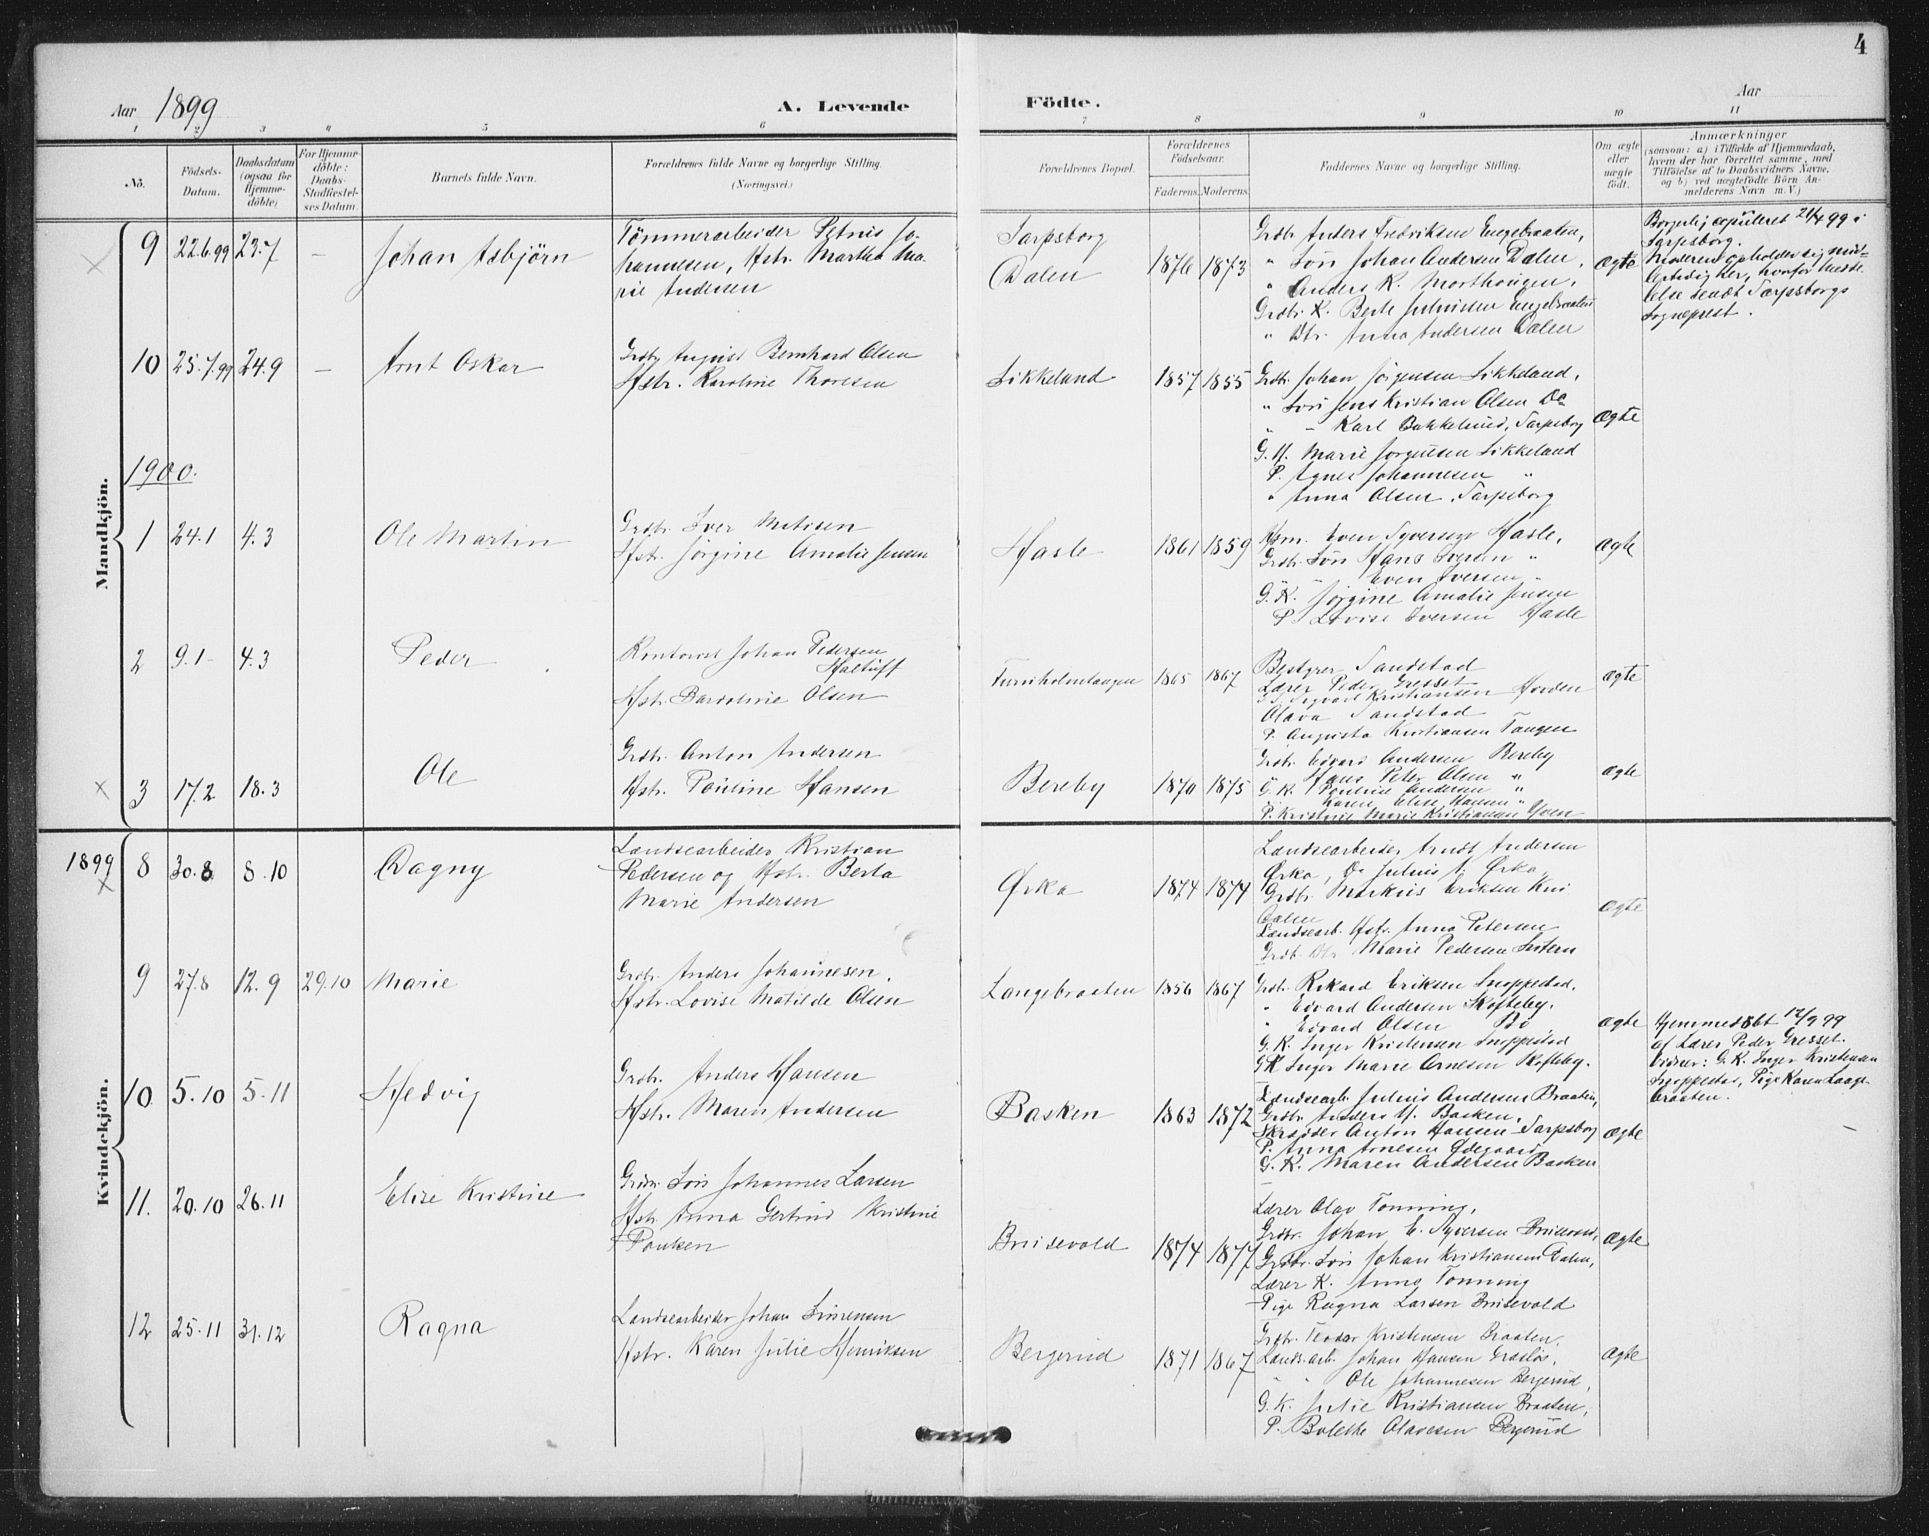 4
Aar 1899
A. Levende Födte.
Aar
1 2 3 4 5 6 7 8 9 10 11
No.
Födsels-Datum.
Daabsdatum (ogsaa for Hjemme-döbte)
For Hjemme-döbte: Daabs-Stadfæstel-ses Datum.
Barnets fulde Navn.
Forældrenes fulde Navne og borgerlige Stilling.
(Næringsvei.)
Forældrenes Bopæl.
Forældrenes Födselsaar.
Faderens. Moderens.
Faddernes Navne og borgerlige Stilling.
Om ægte eller uægte födt.
Anmærkninger
(saasom: a) i Tilfælde af Hjemmedaab,
hvem der har forrettet samme, med
Tilföielse af to Daabsvidners Navne,
og b) ved uægtefödte Börn An-
melderens Navn m. V.)
Mandkjön.
9 22.6.99 23.7 – Johan Asbjörn
Tömmerarbeider Petrus Jo-
hannesen, Hstr. Martha Ma-
rie Andersen
Sarpsborg
Dalen
1876 1873
Grdbr. Anders Fredriksen Engebraaten,
" Sön Johan Andersen Dalen,
" Anders K. Morthaugen,
Grdbr. K. Berte Juliussen Engebraaten
" Dtr. Anna Andersen Dalen
Ægte
Borgerlig copuleret 21/4 99 i
Sarpsborg.
Moderen opholder sig mid-
lertidig her, hvorfor medde
lelse sendt Sarpsborgs
Sogneprest.
10 25.7.99 24.9 – Arnt Oskar
Grdbr August Bernhard Olsen
Hstr. Karoline Thoresen
Likkeland
1857 1855
Grdbr. Johan Jörgensen Likkeland,
" Sön Jens Kristian Olsen Do
" " Karl Bakkelund, Sarpsborg
G. K. Marie Jörgensen Likkeland
P. Agnes Johannesen "
" Anna Olsen, Sarpsborg
Ægte
1900.
1 24.1 4.3 Ole Martin
Grdbr. Iver Matisen
Hstr. Jörgine Amalie Jensen
Hasle
1861 1859
Hsm. Even Syversen Hasle,
Grdbr. Sön Hans Iversen "
" Even Iversen "
G. K. Jörgine Amalie Jensen
P. Lovise Iversen Hasle
Ægte
2 9.1 4.3 Peder
Kontorist Johan Pedersen
Haltuff
Hstr. Bardoline Olsen
Furuholmtangen
1865 1867
Bestyrer Sandstad
Lærer Peder Gresset
Kristiansen Horden
Olava Sandstad
P. Augusta Kristiansen Tangen
Ægte
3 17.2 18.3 Ole
Grdbr. Anton Andersen
Hstr. Pauline Hansen
Bereby
1870 1875
Grdbr. Edvard Andersen Bereby
" Hans Peter Olsen "
G. K. Pauline Andersen "
" Karen Elise Hansen "
P. Kristine Marie Kristiansen Yven
Ægte
Kvindekjön.
1899
8 30.8 8.10 Dagny
Landsearbeider Kristian
Pedersen og Hstr. Berta
Marie Andersen
Ørka
1874 1874
Landsearbeider Arndt Andersen
Ørka, Do Julius A. Ørka,
Grdbr. Markus Eriksen
Dalen
Landsearb. Hstr. Anna Petersen
Grdb. Dtr. Marie Pedersen
Ægte
9 27.8 12.9 29.10 Marie
Grdbr. Anders Johannesen.
Hstr. Lovise Matilde Olsen
Langebraaten
1856 1867
Grdbr. Rikard Eriksen Snoppestad,
" Edvard Andersen Skofteby.
" Edvard Olsen Bö
G. K. Inger Kristensen Snoppestad
G K Inger Marie Arnesen Skofteby.
Ægte
Hjemmedöbt 12/9 99
af Lærer Peder Gresset.
Vidner: G. K. Inger Kristensen
Snoppestad, Pige Karen Lange-
braaten.
10 5.10 5.11 Hedvig
Grdb. Anders Hansen
Hstr. Maren Andersen
Basken
1863 1872
Landsearb. Julius Andersen Braaten,
Grdbr. Anders H. Basken,
Skræder Anton Hansen Sarpsborg
P. Anna Arnesen Ødegaard
G. K. Maren Andersen Basken
Ægte
11. 20.10 26.11 Elise Kristine
Grdbr. Sön Johannes Larsen
Hstr. Anna Gertrud Kristine
Paulsen
Brusevold
1874 1877
Lærer Olav Tönning,
Grdbr. Johan E. Syversen Brusevold,
Grdbr. Sön Johan Kristiansen Dalen,
Lærer K. Anna Tönning
Pige Ragna Larsen Brusevold
Ægte
12 25.11 31.12 Ragna
Landsearbeider Johan Sörensen
Hstr. Karen Julie Henriksen
Bergerud
1871 1867
Grdbr. Teodor Kristensen Braaten,
Landsarb. Johan Hansen Grasløs,
" " Ole Johannesen Bergerud,
G. K. Julie Kristiansen Braaten,
P. Bolette Olavesen Bergerud
Ægte